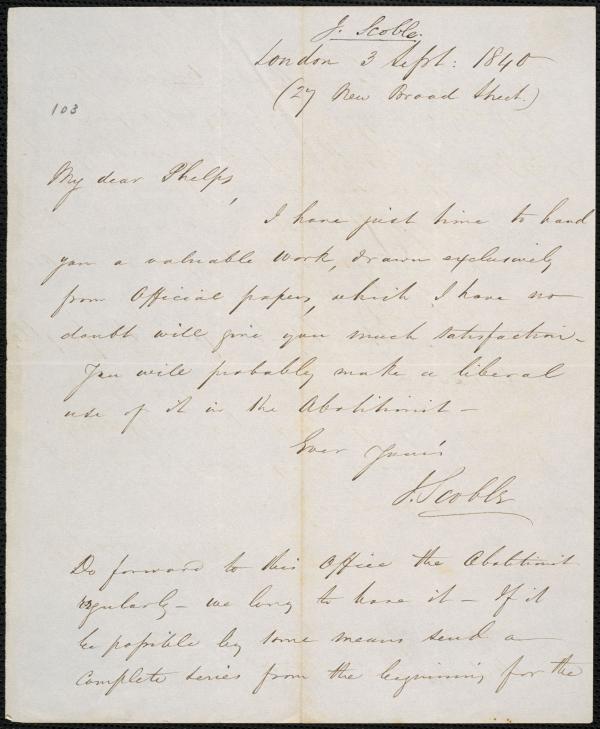 J. Scoble.
London 3 Sept: 1840
(27 New Broad Street.)
103
My dear Phelps,
I have just time to hand
you a valuable work, drawn exclusively
from Official papers, which I have no
doubt will give you much satisfaction–
You will probably make a liberal
use of it in the Abolitionist –
Ever Yours
J. Scoble
Do forward to this Office the Abolitionist
regularly – we long to have it – If it
be possible by some means send a
complete series from the beginning for the